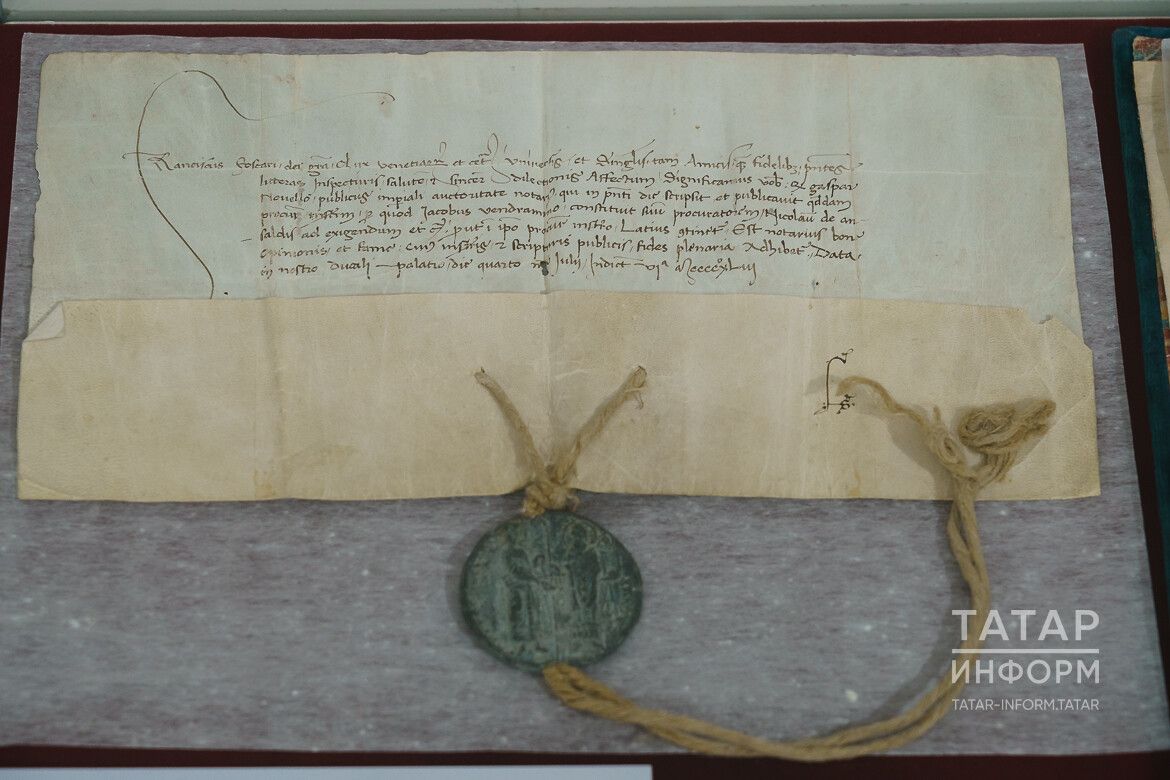 Franciscus Foscari dei gra Dux venetiarȝ et cetȝ Universis et Singulis tam Amicis qȝ fidelibȝ pntes
litteras Inspecturis salutȝ et sincerȝ dilectionis Affectum Significamus vobȝ qȝ gaspar
novello publicus impiali auctoritate notarȝ qui in pnti die scripsit et publicavit qddam
procurȝ instrm quod Jacobus vendramino constituit suū procuratorem Nicolaū de an
saldis ad exigendum et cȝ put i ipo procurȝ instro Latius ɔtinetȝ Est notarius bone
opinionis et fame cuiȝ instris et scripturis publicis fides plenaria Adhibetȝ Data
in nostro ducali palatio die quarto mȝ Julij Indictȝ viᵃ Mccccxliij
ТАТАР
ИНФОРМ
TATAR-INFORM.TATAR